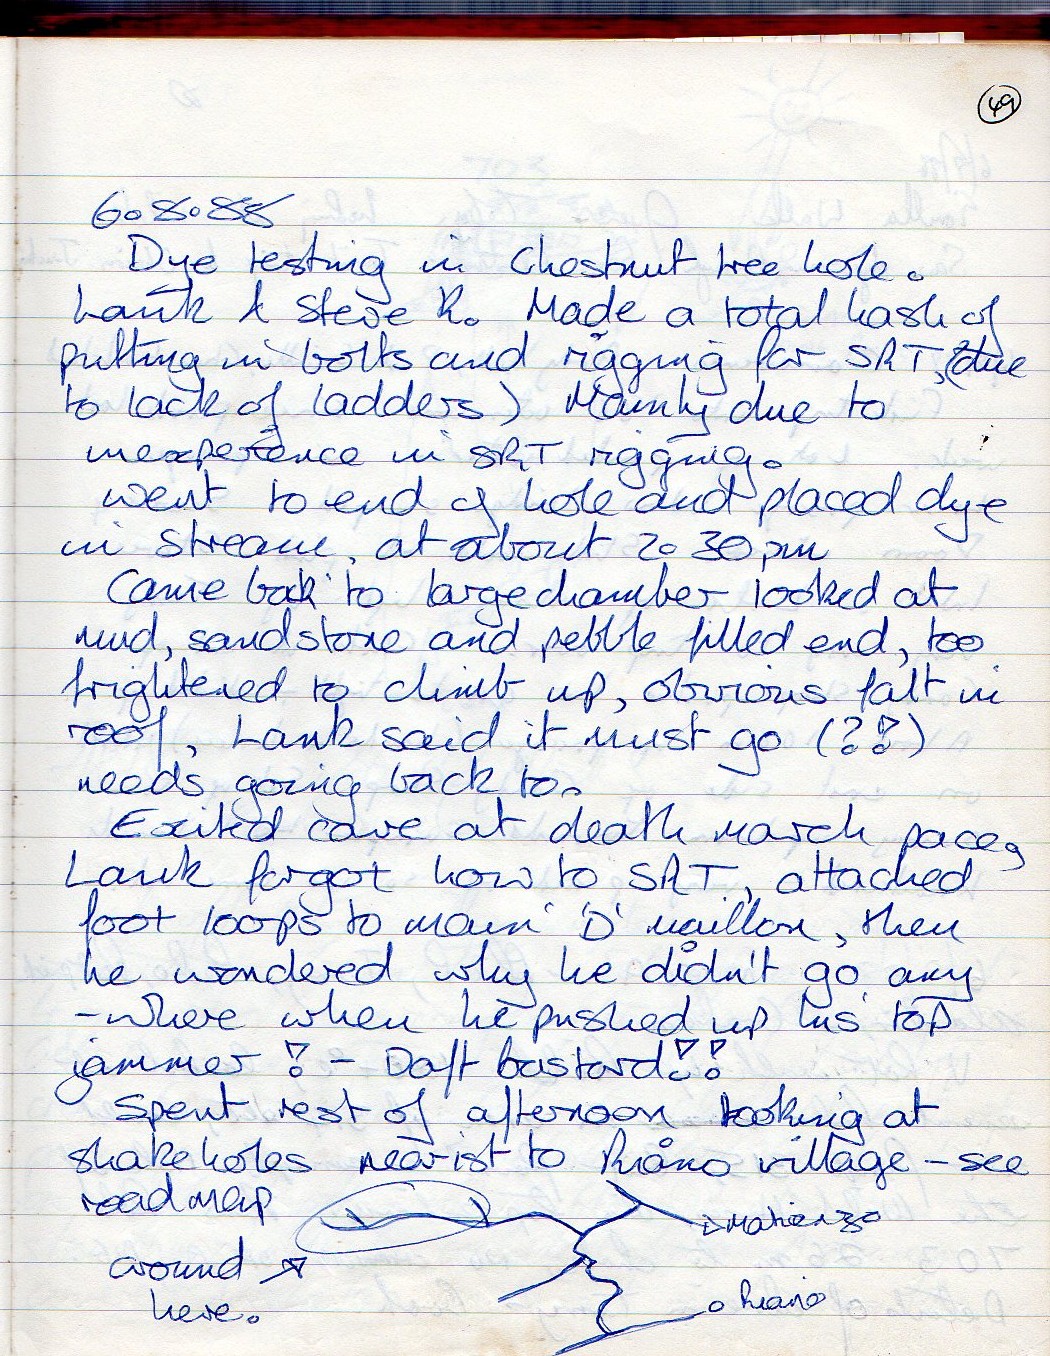 49
6.8.88
Dye testing in Chestnut tree hole.
Lank & Steve R. Made a total hash of
putting in bolts and rigging for SRT, (due
to lack of ladders) Mainly due to
inexperience in SRT rigging.
went to end of hole and placed dye
in stream, at about 2.30pm
Came back to large chamber looked at
mud, sandstone and pebble filled end, too
frightened to climb up, obvious falt in
roof, Lank said it must go (?!?)
needs going back to.
Exited cave at death march pace,
Lank forgot how to SRT, attached
foot loops to main 'D' maillon, then
he wondered why he didn't go any
-where when he pushed up his top
jammer ! - Daft bastard!!
Spent rest of afternoon looking at
shakeholes nearist to Riaño village - see
road map
Matienzo
around
here.
Riaño